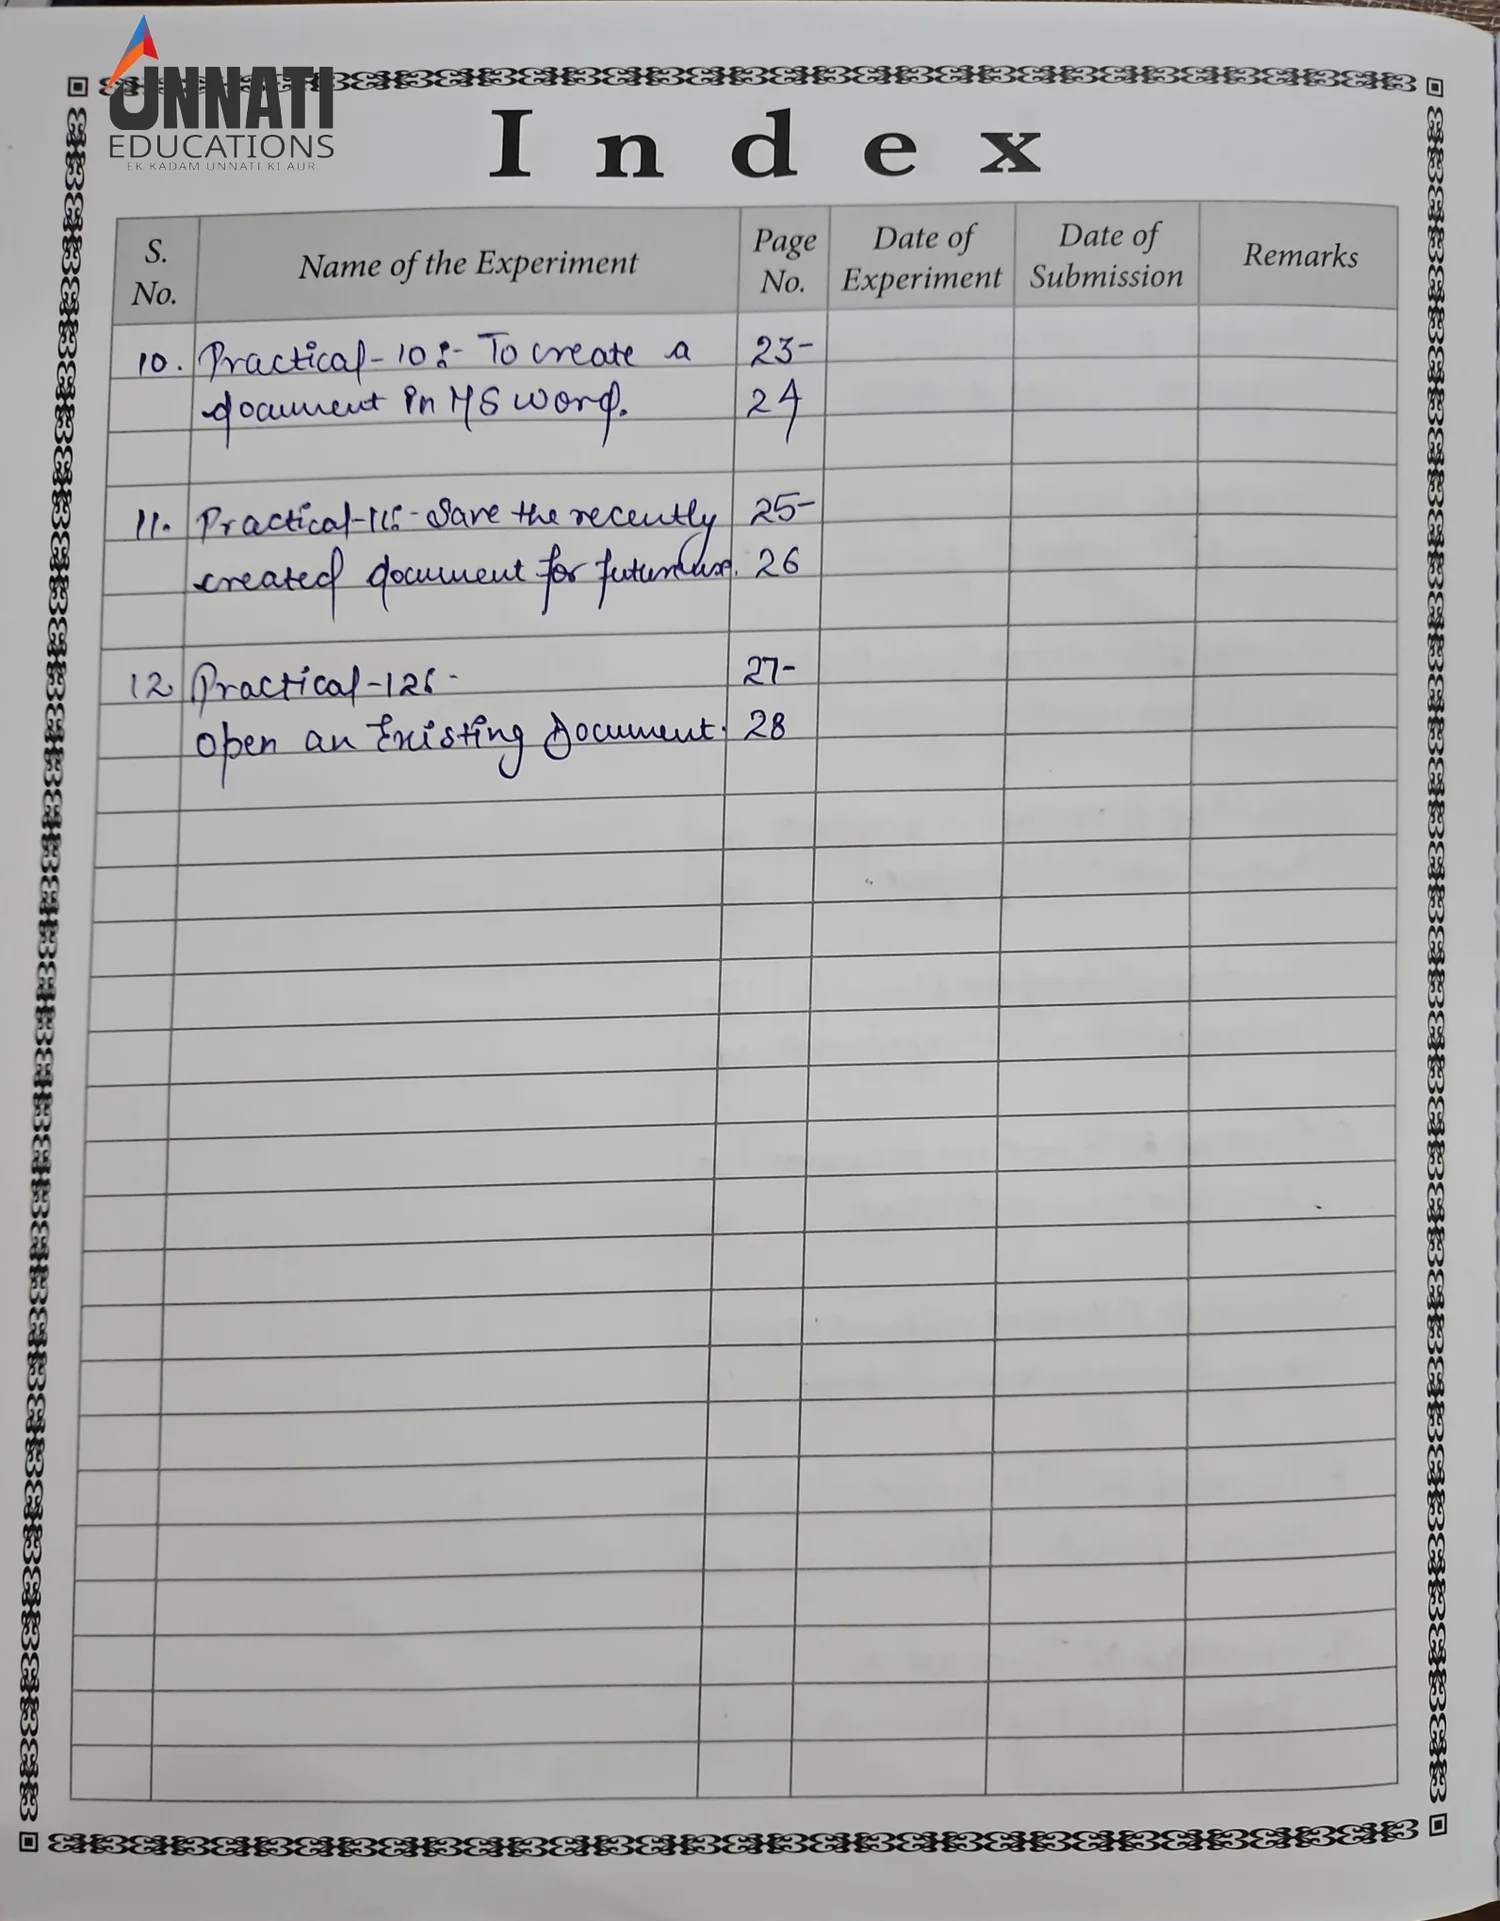 UNNATI
EDUCATIONS
EK KADAM UNNATI KI AUR
Index
S. No. Name of the Experiment Page No. Date of Experiment Date of Submission Remarks
10. Practical-10:- To create a 23-
document in MS word. 24
11. Practical-11:- Save the recently 25-
created document for future use. 26
12 Practical-12:- 27-
open an Existing Document. 28